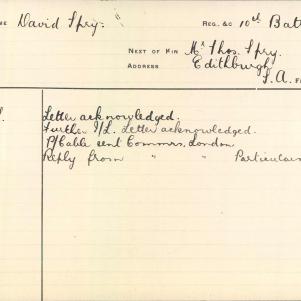 ME David Spry. REG. &C 10th Batt
NEXT OF KIN Mr Thos. Spry.
ADDRESS Edithburgh
S.A.
Letter acknowledged.
Further I/L. Letter acknowledged.
P/Cable sent Commrs. London
Reply from " " Particulars